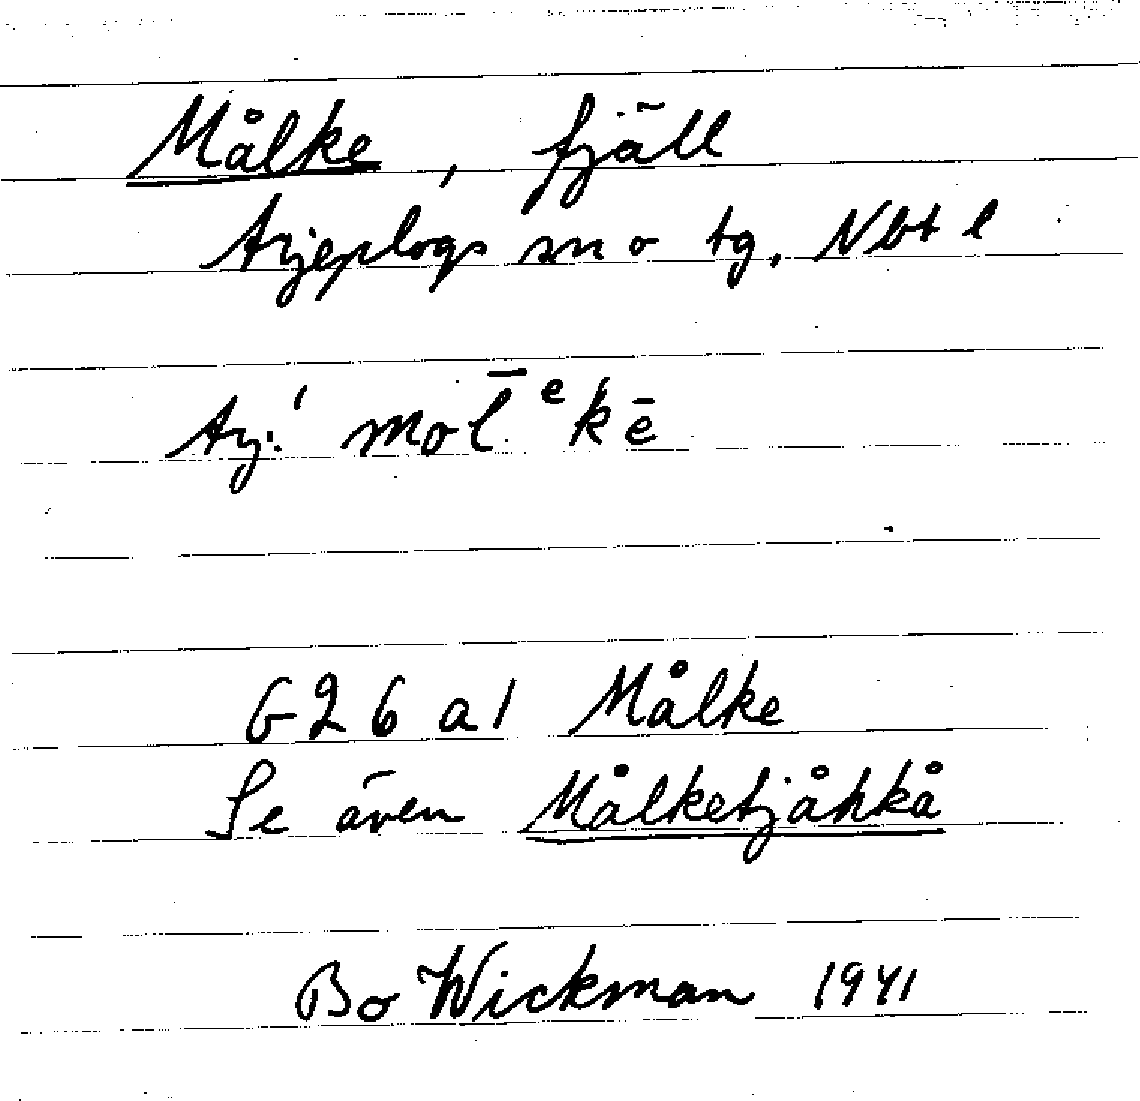 Målke, fjäll
Arjeplogs sn o tg, Nbt l
Arj.' mol̄ᵉkē
G26 a1 Målke
Se även Målketjåhkå
Bo Wickman 1941